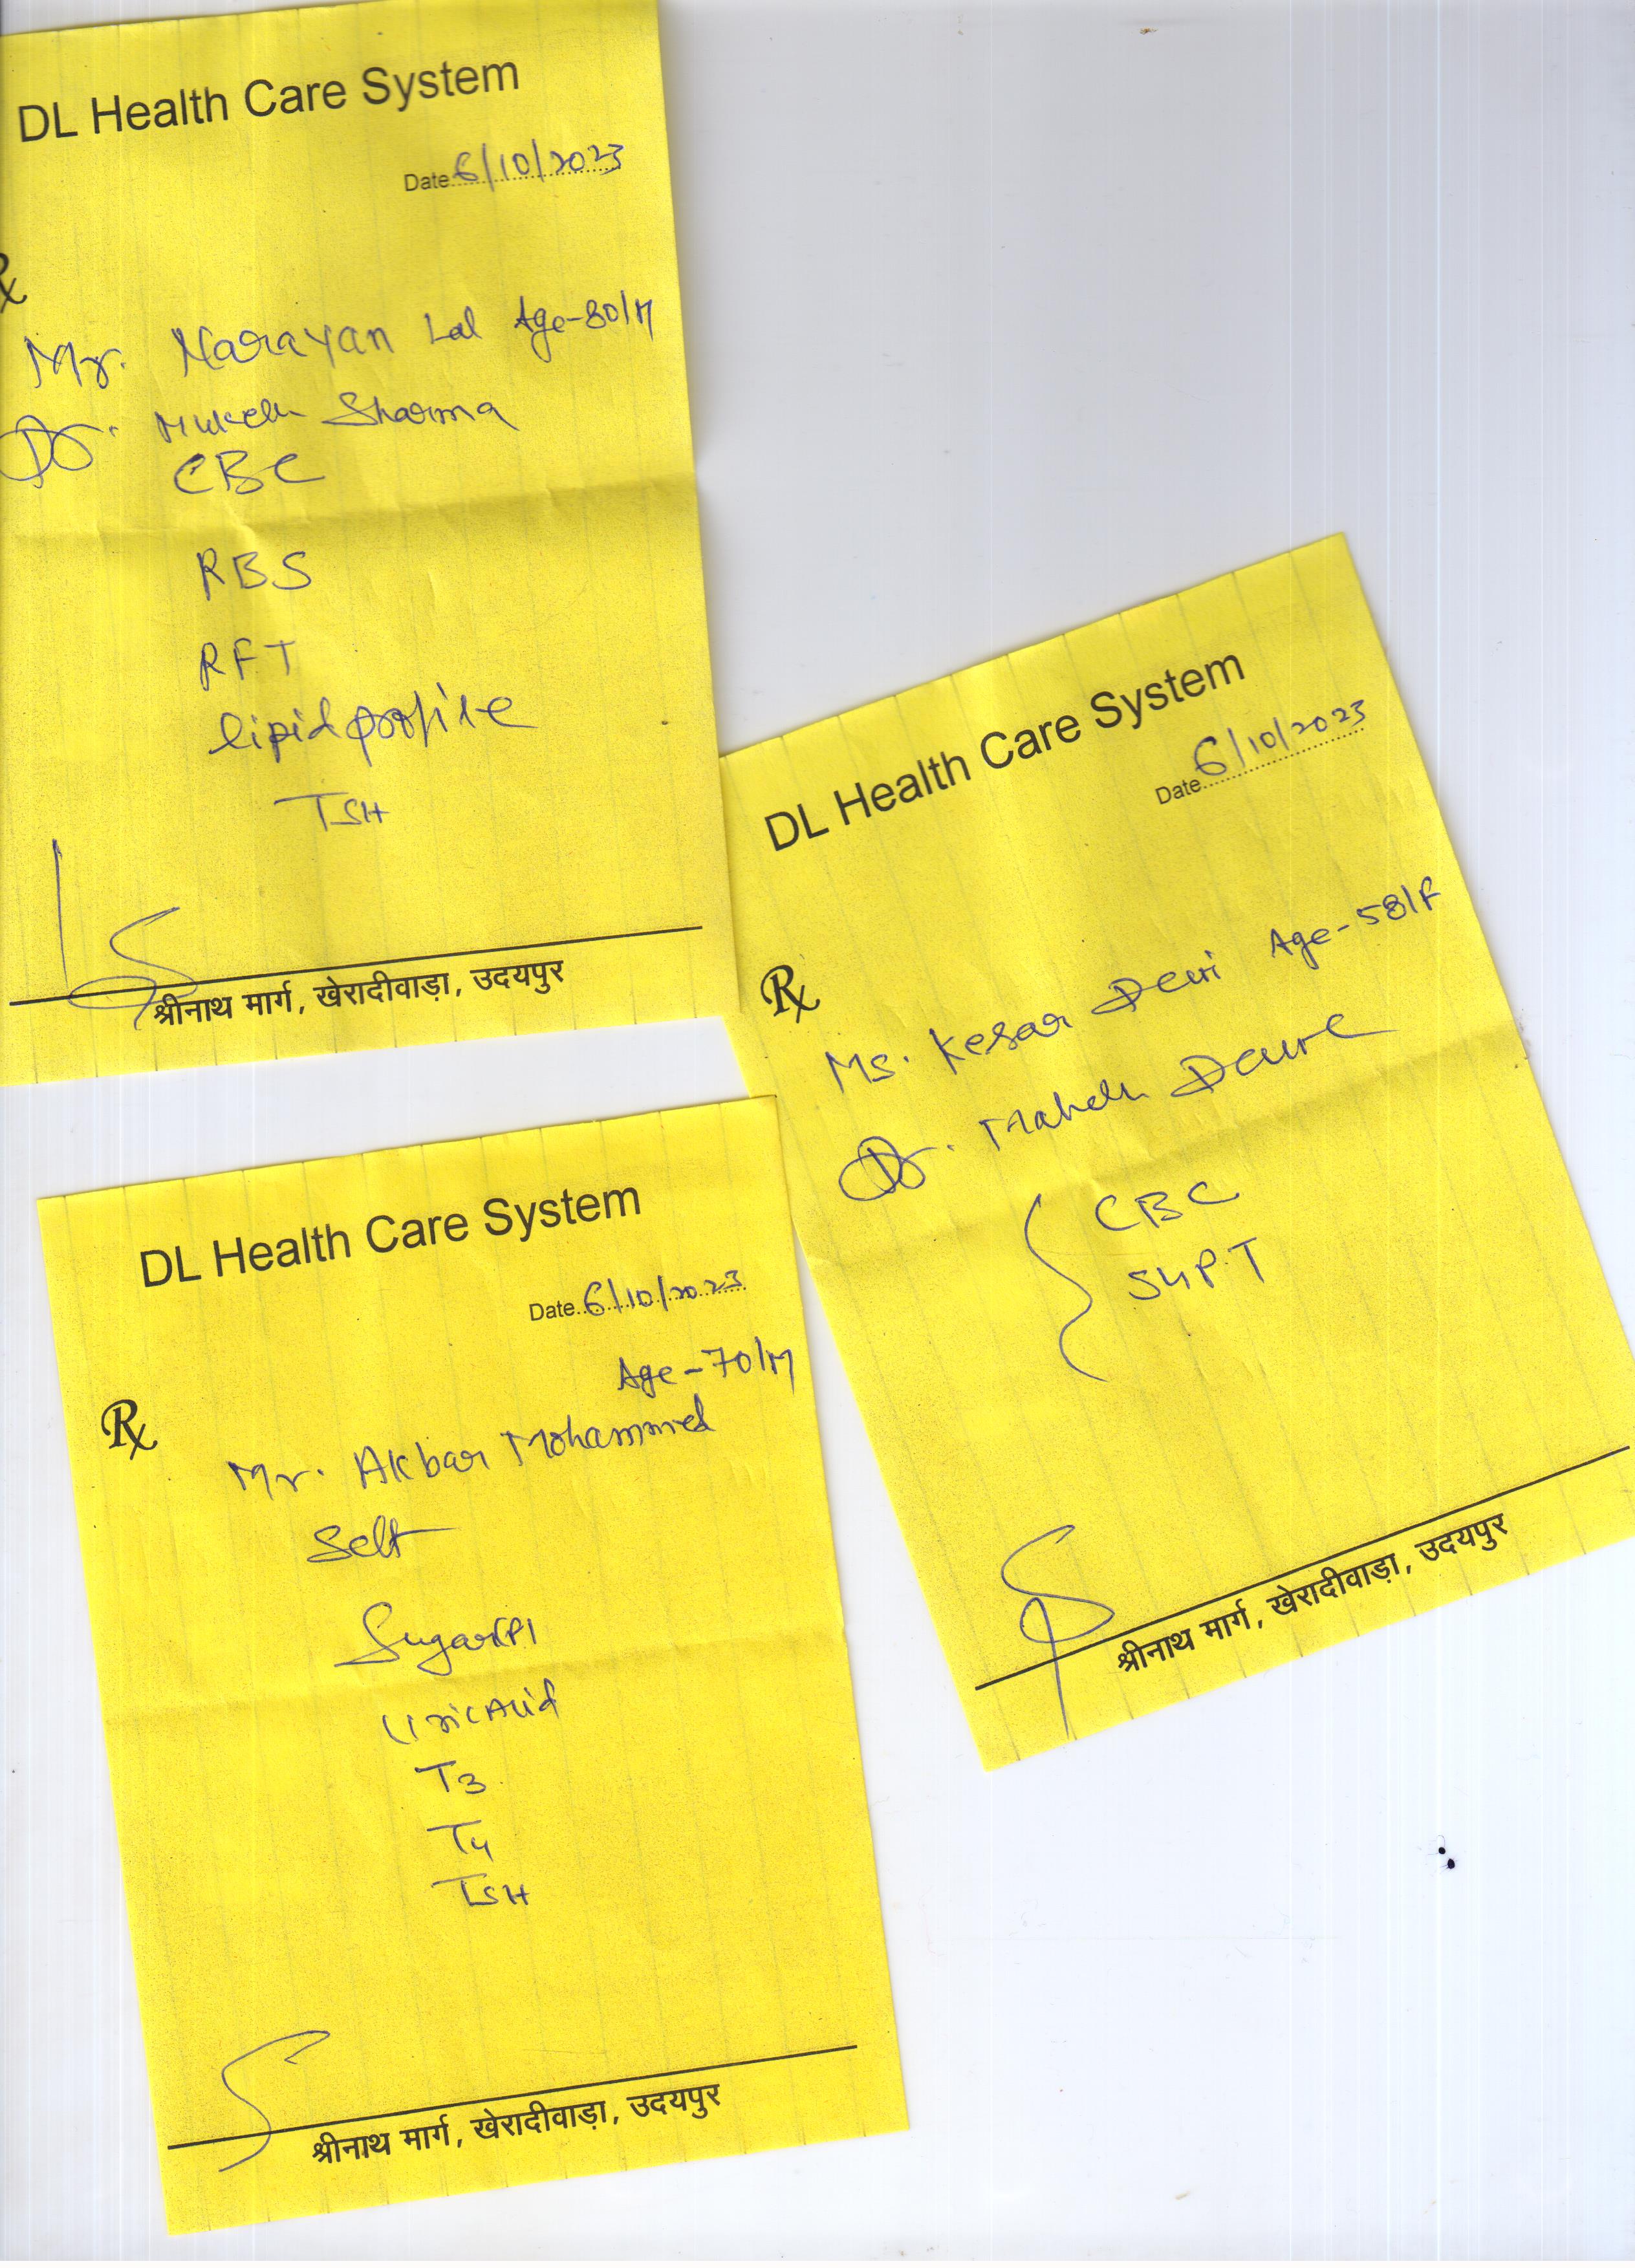 DL Health Care System
Date 6/10/2023
Rx
Mr. Narayan Lal Age-80/M
Dr. Mukesh Sharma
CBC
RBS
RFT
lipid profile
TSH
श्रीनाथ मार्ग, खेरादीवाड़ा, उदयपुर
DL Health Care System
Date 6/10/2023
Rx
Ms. Kesar Devi Age-58/F
Dr. Mahesh Dave
CBC
SGPT
श्रीनाथ मार्ग, खेरादीवाड़ा, उदयपुर
DL Health Care System
Date 6/10/2023
Age-70/M
Rx
Mr. Akbar Mohammed
Self
Sugar(F)
Uric Acid
T3
T4
TSH
श्रीनाथ मार्ग, खेरादीवाड़ा, उदयपुर